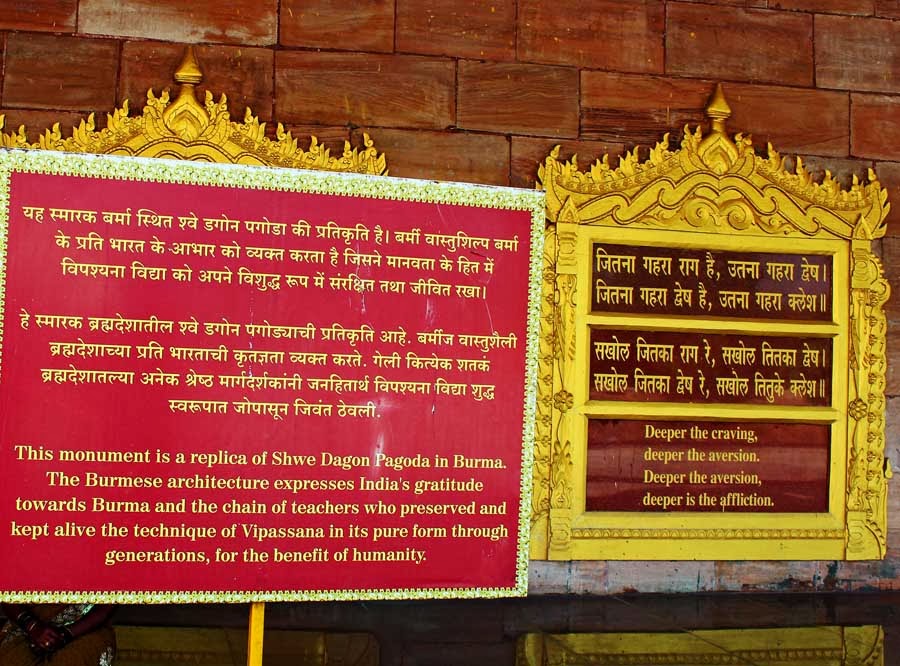 यह स्मारक बर्मा स्थित श्वे डगोन पगोडा की प्रतिकृति है। बर्मी वास्तुशिल्प बर्मा
के प्रति भारत के आभार को व्यक्त करता है जिसने मानवता के हित में
विपश्यना विद्या को अपने विशुद्ध रूप में संरक्षित तथा जीवित रखा।
हे स्मारक ब्रह्मदेशातील श्वे डगोन पगोड्याची प्रतिकृति आहे. बर्मीज वास्तुशैली
ब्रह्मदेशाच्या प्रति भारताची कृतज्ञता व्यक्त करते. गेली कित्येक शतकं
ब्रह्मदेशातल्या अनेक श्रेष्ठ मार्गदर्शकांनी जनहितार्थ विपश्यना विद्या शुद्ध
स्वरूपात जोपासून जिवंत ठेवली.
This monument is a replica of Shwe Dagon Pagoda in Burma.
The Burmese architecture expresses India's gratitude
towards Burma and the chain of teachers who preserved and
kept alive the technique of Vipassana in its pure form through
generations, for the benefit of humanity.
जितना गहरा राग है, उतना गहरा द्वेष।
जितना गहरा द्वेष है, उतना गहरा क्लेश॥
सखोल जितका राग रे, सखोल तितका द्वेष।
सखोल जितका द्वेष रे, सखोल तितुके क्लेश॥
Deeper the craving,
deeper the aversion.
Deeper the aversion,
deeper is the affliction.